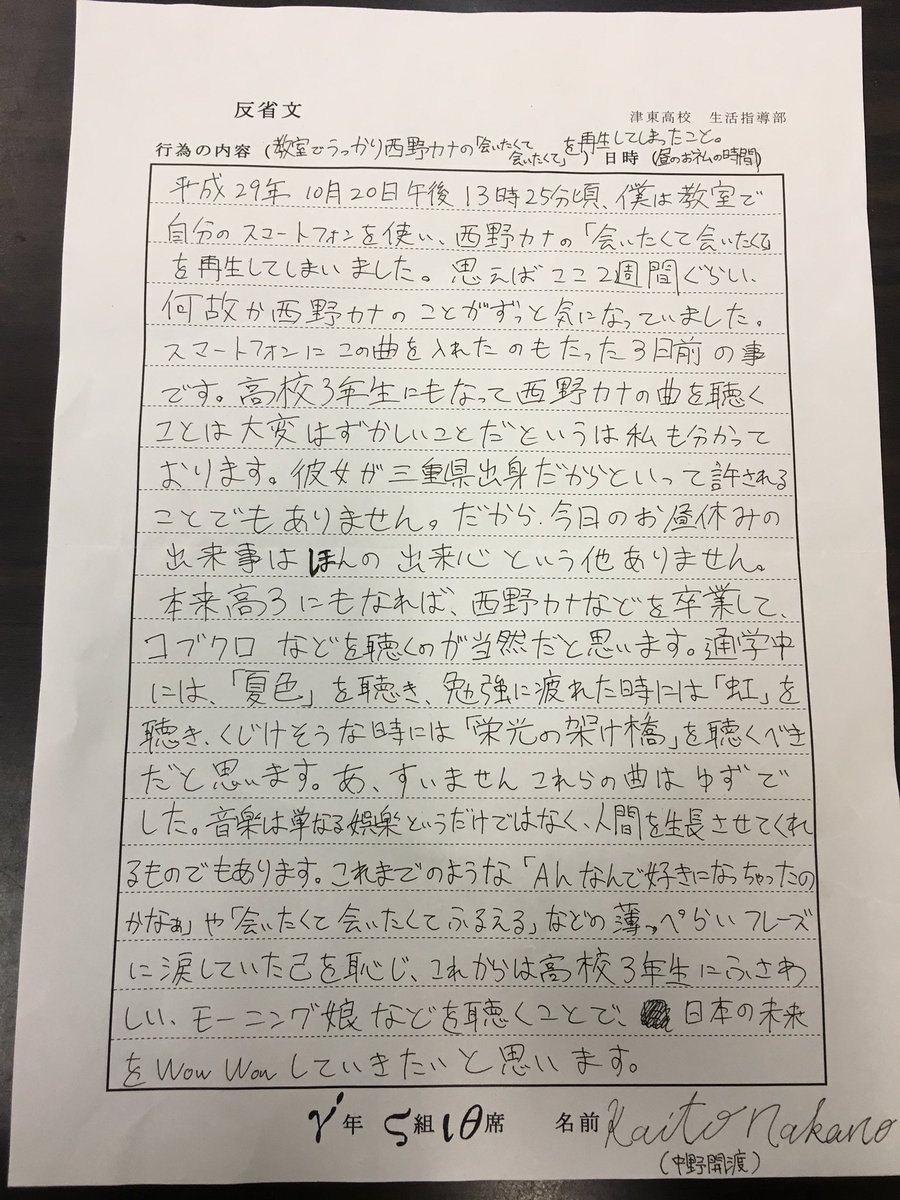 反省文
津東高校 生活指導部
行為の内容(教室でうっかり西野カナの「会いたくて会いたくて」を再生してしまったこと。) 日時(昼のお休みの時間)
平成29年 10月20日午後 13時25分頃、僕は教室で
自分のスマートフォンを使い、西野カナの「会いたくて会いたくて」
を再生してしまいました。思えばここ2週間ぐらい、
何故か西野カナのことがずっと気になっていました。
スマートフォンにこの曲を入れたのもたった3日前の事
です。高校3年生にもなって西野カナの曲を聴く
ことは大変はずかしいことだというは私も分かって
おります。彼女が三重県出身だからといって許される
ことでもありません。だから、今日のお昼休みの
出来事はほんの出来心という他ありません。
本来高3にもなれば、西野カナなどを卒業して、
コブクロなどを聴くのが当然だと思います。通学中
には、「夏色」を聴き、勉強に疲れた時には「虹」を
聴き、くじけそうな時には「栄光の架け橋」を聴くべき
だと思います。あ、すいませんこれらの曲はゆずで
した。音楽は単なる娯楽というだけではなく、人間を生長させてくれ
るものでもあります。これまでのような「Ahなんで好きになっちゃったの
かなぁ」や「会いたくて会いたくてふるえる」などの薄っぺらいフレーズ
に涙していた己を恥じ、これからは高校3年生にふさわ
しい、モーニング娘などを聴くことで、日本の未来
をWow Wowしていきたいと思います。
年 組 席 名前 Kaito Nakano
(中野開渡)